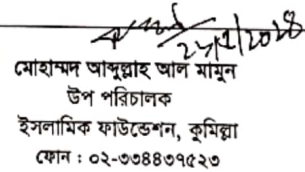 মোহাম্মদ আব্দুল্লাহ আল মামুন
উপ পরিচালক
ইসলামিক ফাউন্ডেশন, কুমিল্লা
ফোন : ০২-৩৩৪৪৩৭৫২৩